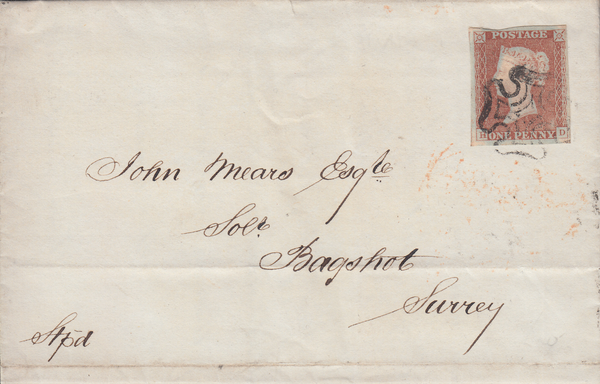 POSTAGE
ONE PENNY
D
John Mears Esqre
Solr
Bagshot
Surrey
Stpd